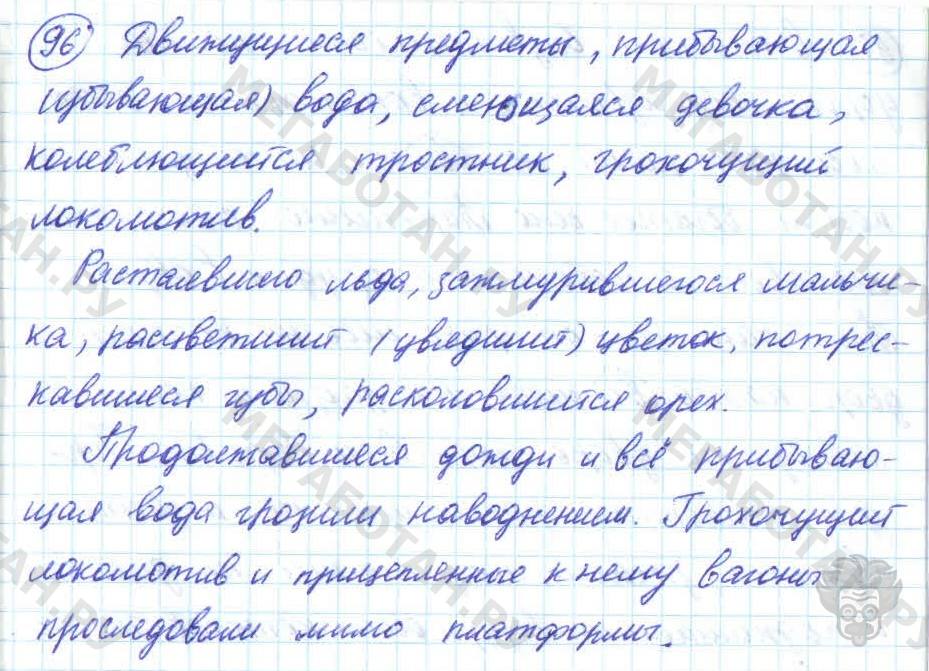 96 Движущиеся предметы, прибывающая
(убывающая) вода, смеющаяся девочка,
колеблющийся тростник, грохочущий
локомотив.
Растаявшего льда, зажмурившегося мальчи-
ка, расцветший (увядший) цветок, потрес-
кавшиеся губы, расколовшийся орех.
Продолжавшиеся дожди и всё прибываю-
щая вода грозили наводнением. Грохочущий
локомотив и прицепленные к нему вагоны
проследовали мимо платформы.
МЕГАБОТАН.РУ